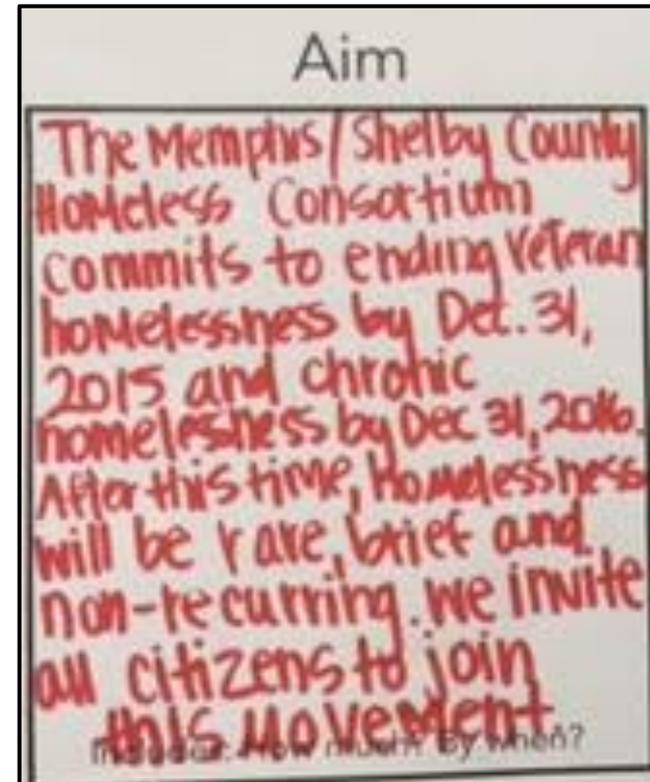 Aim
The Memphis/Shelby County
Homeless Consortium
commits to ending veteran
homelessness by Dec. 31,
2015 and chronic
homelessness by Dec 31, 2016.
After this time, homelessness
will be rare, brief and
non-recurring. We invite
all citizens to join
this movement
How much? By when?